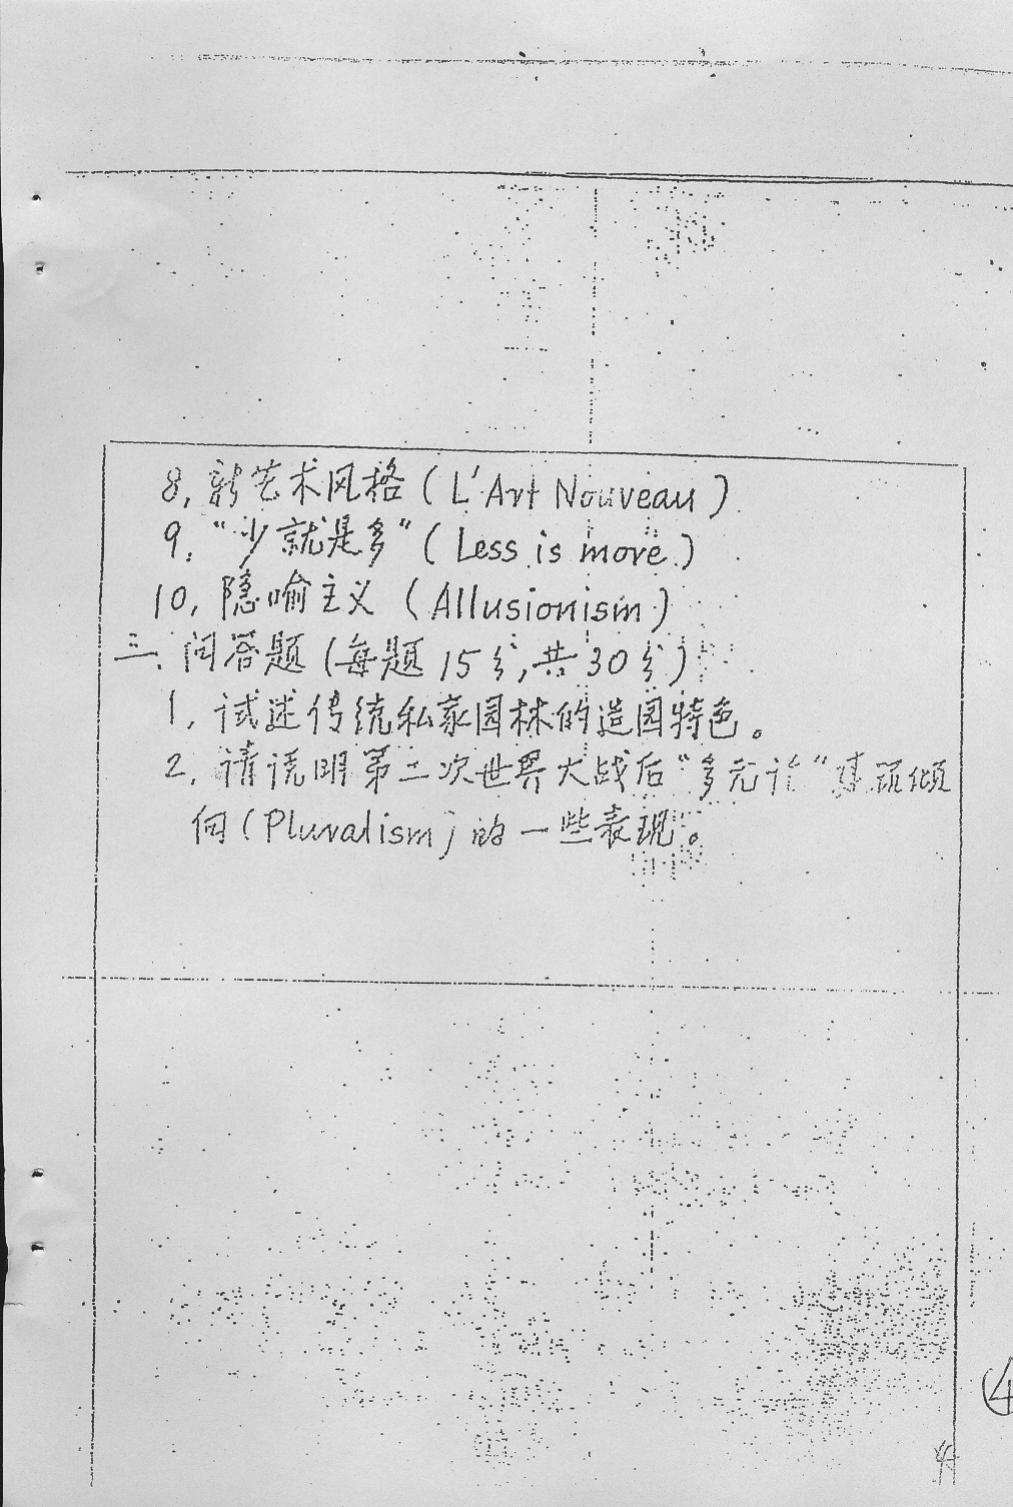 8, 新艺术风格 (L'Art Nouveau)
9, “少就是多” (Less is more)
10, 隐喻主义 (Allusionism)
三、问答题 (每题15分,共30分)
1, 试述传统私家园林的造园特色。
2, 请说明第二次世界大战后“多元论”建筑倾
向 (Pluralism) 的一些表现。
4